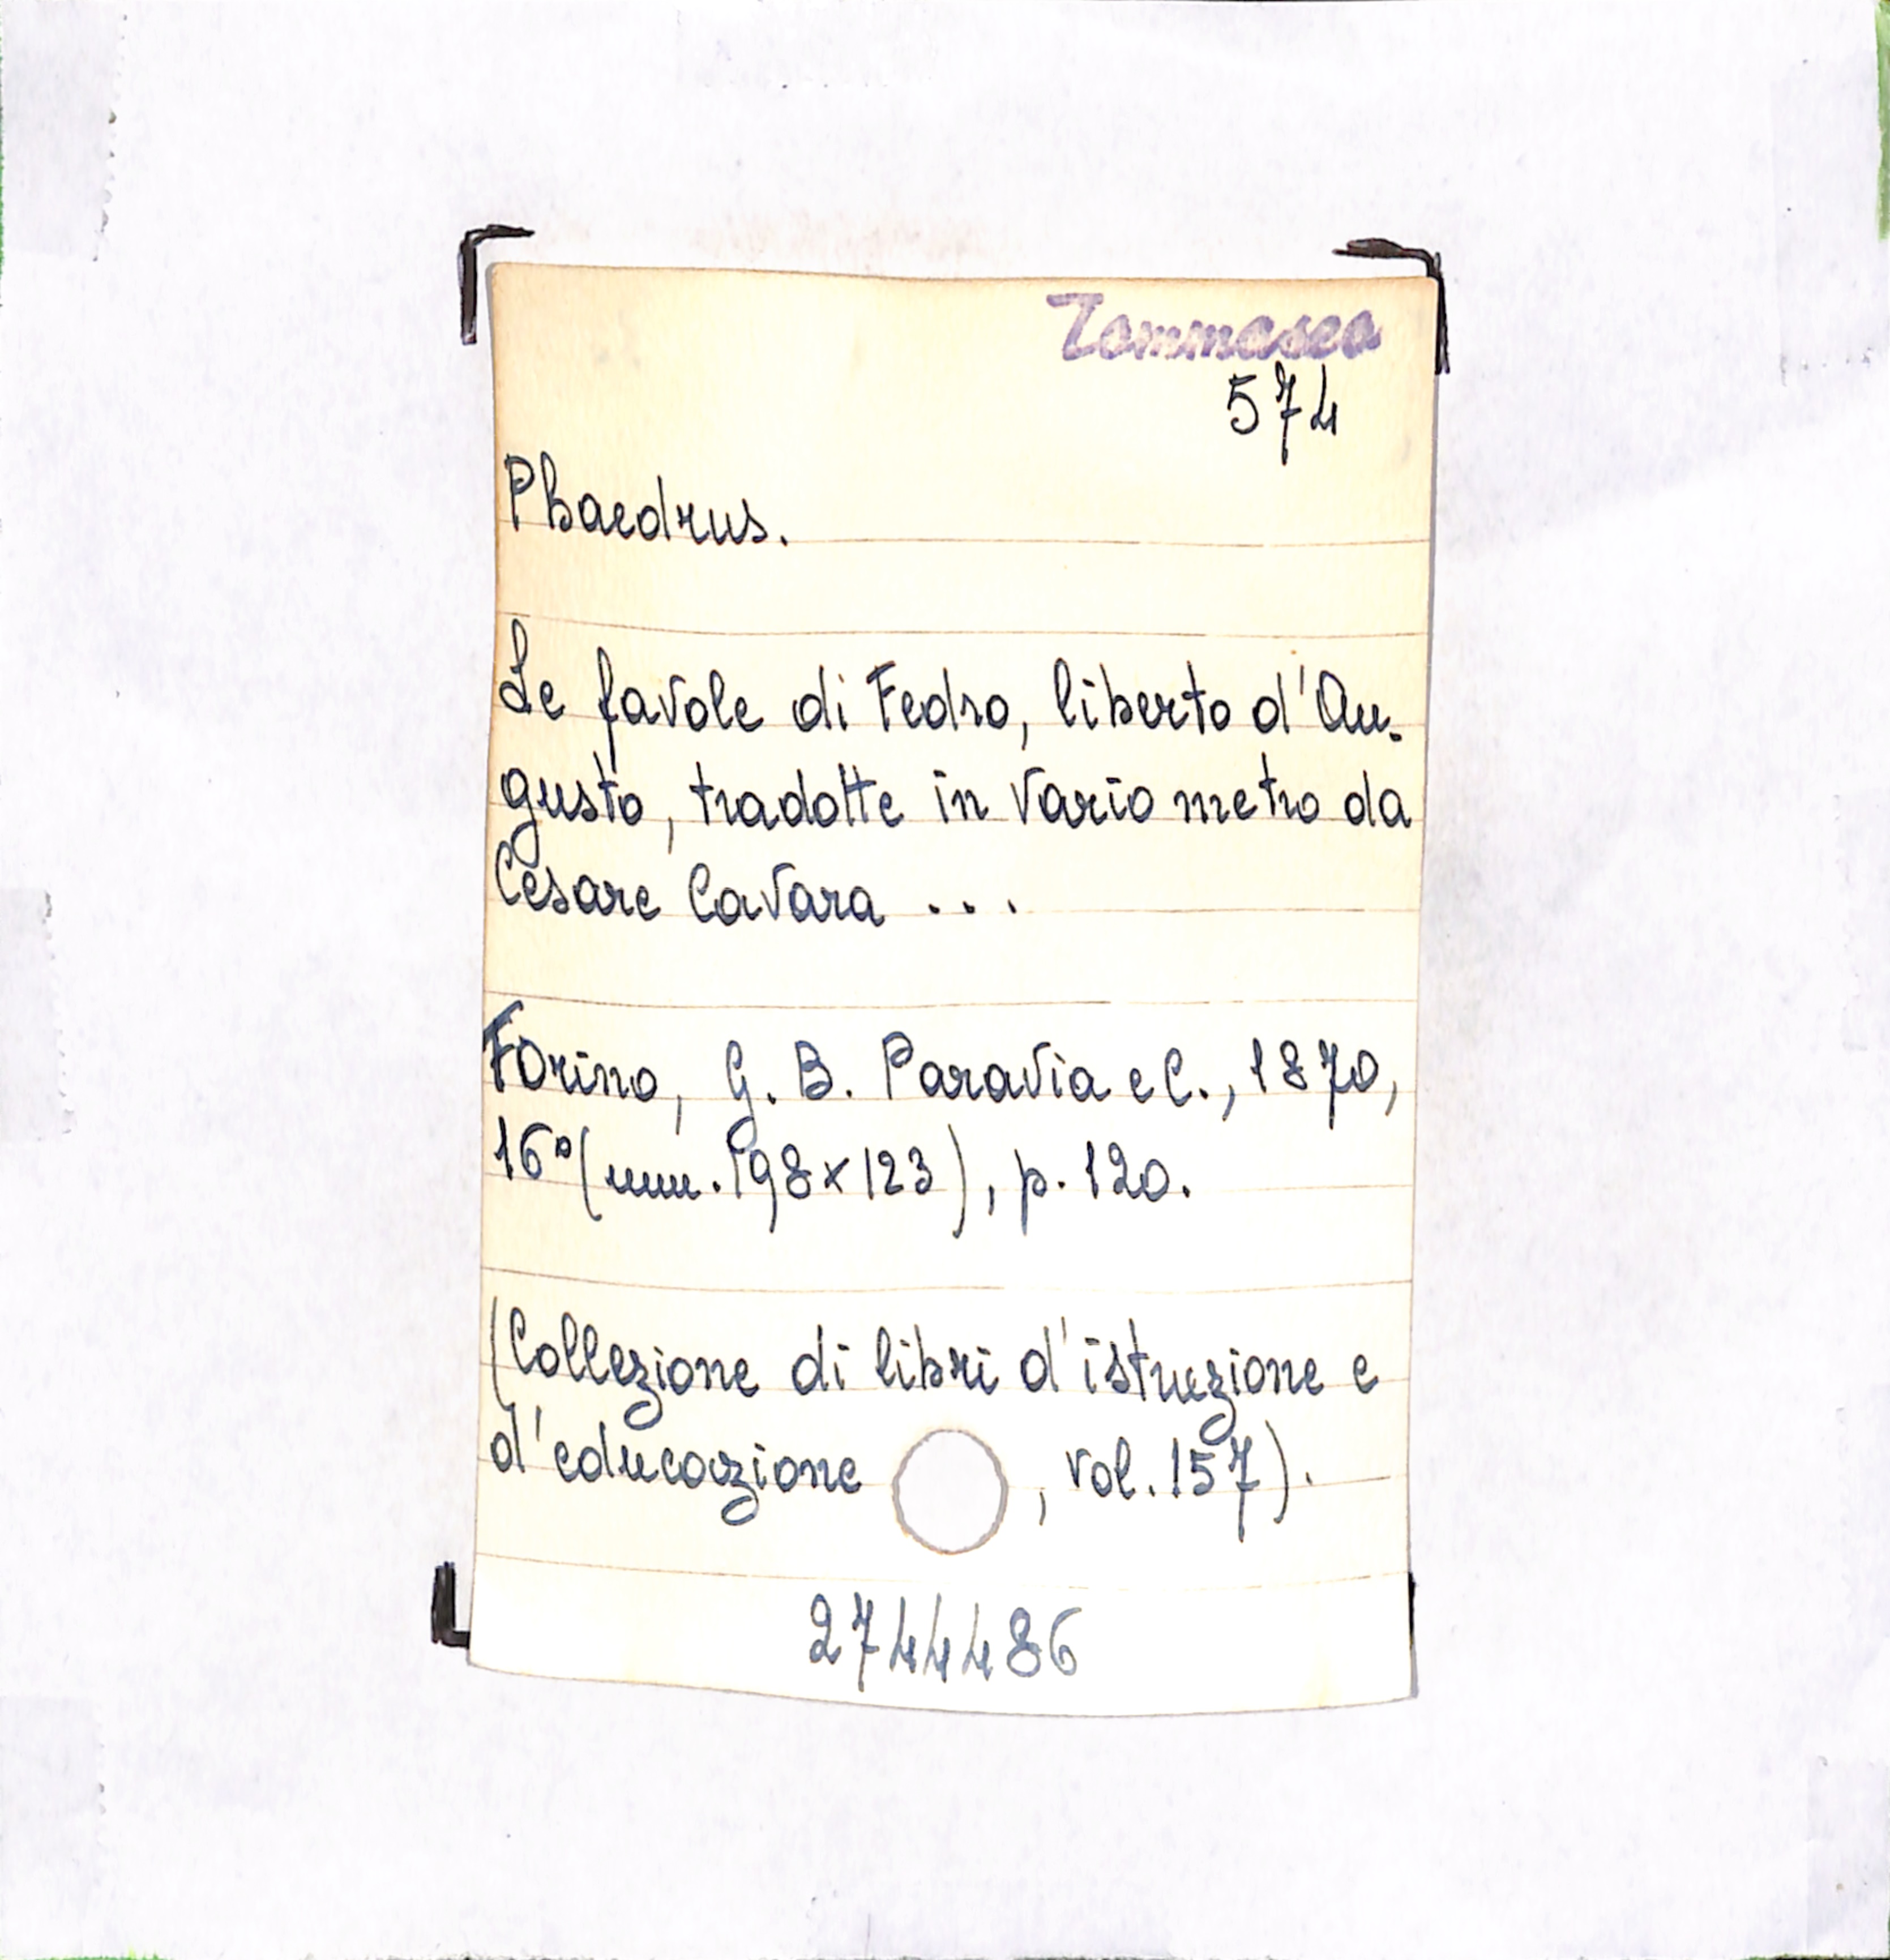 Tommaseo
574
Phaedrus.
Le favole di Fedro, liberto d'Au-
gusto, tradotte in vario metro da
Cesare Cavara ...
Torino, G. B. Paravia e C., 1870,
16° (mm. 198x123), p. 120.
(Collezione di libri d'istruzione e
d'educazione , vol. 157).
2744486